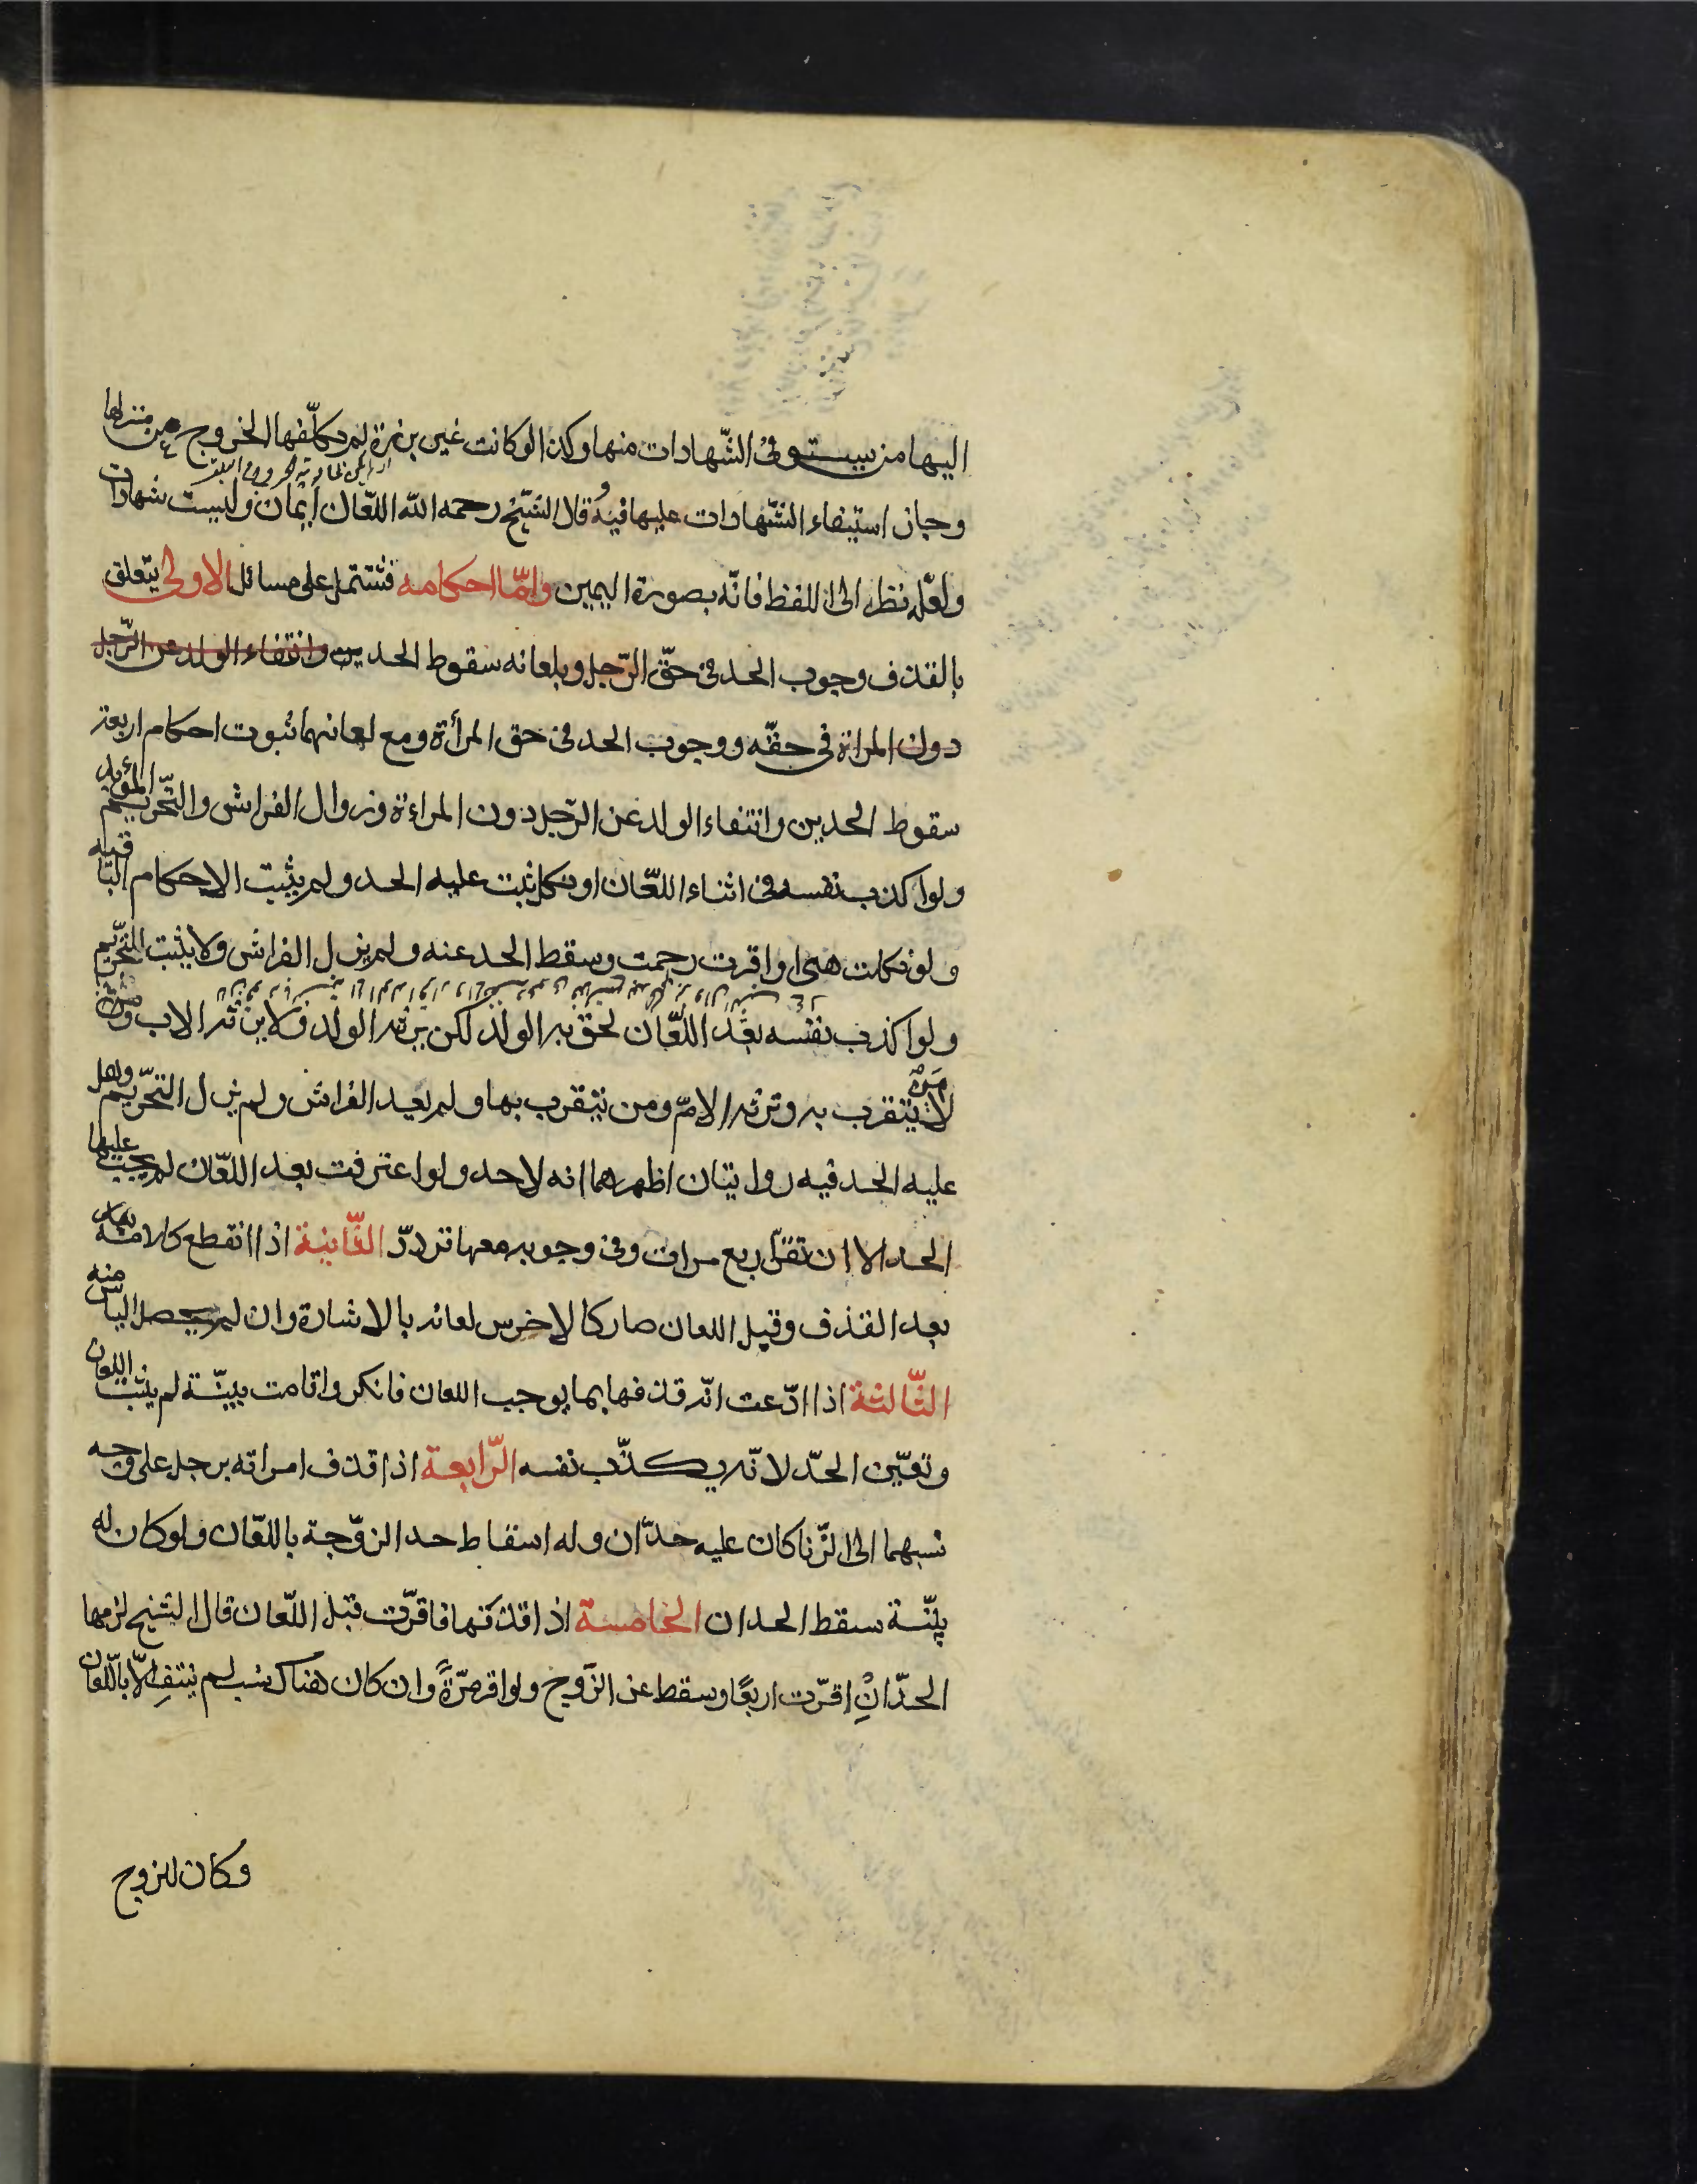 اليها من يستوفى الشّهادات منها وكذا لوكانت غير برزة لم يكلّفها الخروج من منزلها
وجاز استيفاء الشّهادات عليها فيه وقال الشّيخ رحمه الله اللّعان أيمان وليست شهادات
ولعلّه نظرا الى اللفظ فانّه بصورة اليمين وامّا احكامه فتشتمل على مسائل الاولى يتعلق
بالقذف وجوب الحد فى حقّ الرّجل وبلعانه سقوط الحدين وانتفاء الولد عن الرّجل
دون المراة فى حقّه ووجوب الحد فى حق المرأة ومع لعانهما ثبوت احكام اربعة
سقوط الحدين وانتفاء الولد عن الرّجل دون المراءة وزوال الفراش والتّحريم المؤبد
ولو اكذب نفسه فى اثناء اللّعان او نكل ثبت عليه الحد ولم يثبت الاحكام الباقية
ولو نكلت هى او اقرت رجمت وسقط الحد عنه ولم يزل الفراش ولا يثبت التّحريم
ولو اكذب نفسه بعد اللّعان لحق به الولد لكن يرثه الولد ولا يرثه الاب ولا من
لا يتقرب به وترثه الامّ ومن يتقرب بها ولم يعد الفراش ولم يزل التّحريم وهل
عليه الحد فيه روايتان اظهرهما انه لا حد ولو اعترفت بعد اللّعان لم يجب عليها
الحد الا ان تقرّ اربع مرات وفى وجوبه معها تردّد الثّانية اذا انقطع كلامه
بعد القذف وقبل اللعان صار كالاخرس لعانه بالاشارة وان لم يحصل الياس منه
الثّالثة اذا ادّعت انّه قذفها بما يوجب اللعان فانكر واقامت بيّنة لم يثبت اللعان
وتعيّن الحدّ لانّه يكذّب نفسه الرّابعة اذا قذف امراته برجل على وجه
نسبهما الى الزّنا كان عليه حدّان وله اسقاط حد الزوّجة باللّعان ولو كان له
بيّنة سقط الحدان الخامسة اذا قذفها فاقرّت قبل اللّعان قال الشيخ لزمها
الحدّ ان اقرّت اربعًا وسقط عن الزّوج ولو اقر مرّةً وان كان هناك نسب لم ينتف الّا باللّعان
وكان للزوج